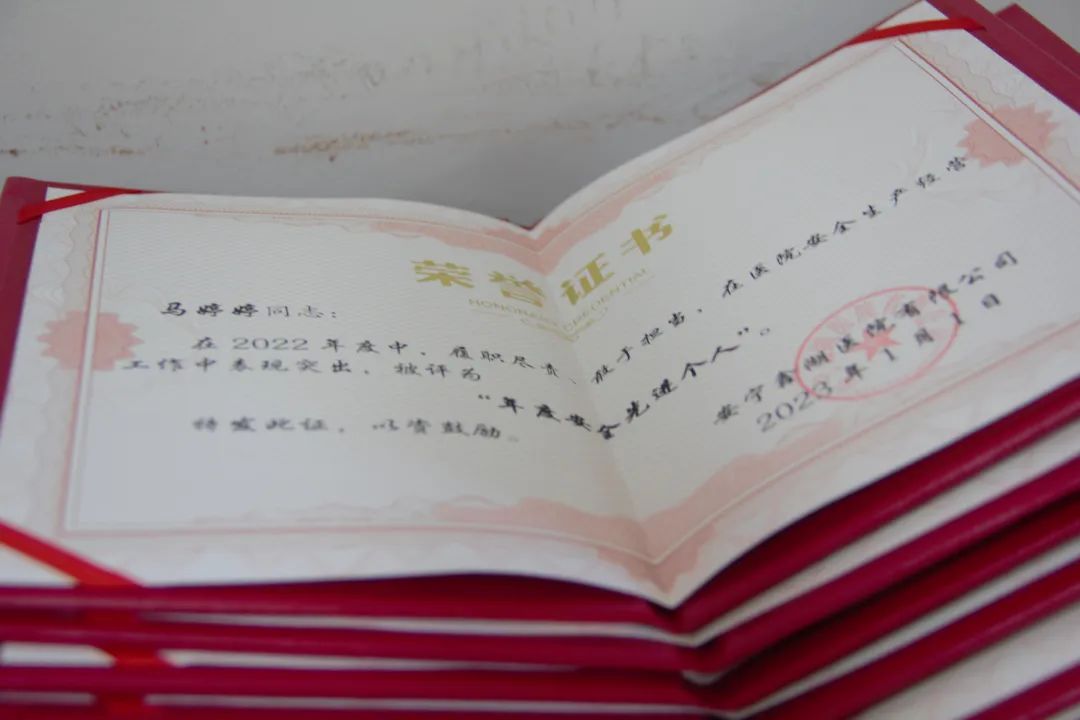 荣誉证书
HONORARY CREDENTIAL
马婷婷同志：
在2022年度中，履职尽责、敢于担当，在医院安全生产经营
工作中表现突出，被评为
“年度安全先进个人”。
特发此证，以资鼓励。
安宁鑫湖医院有限公司
2023年1月1日